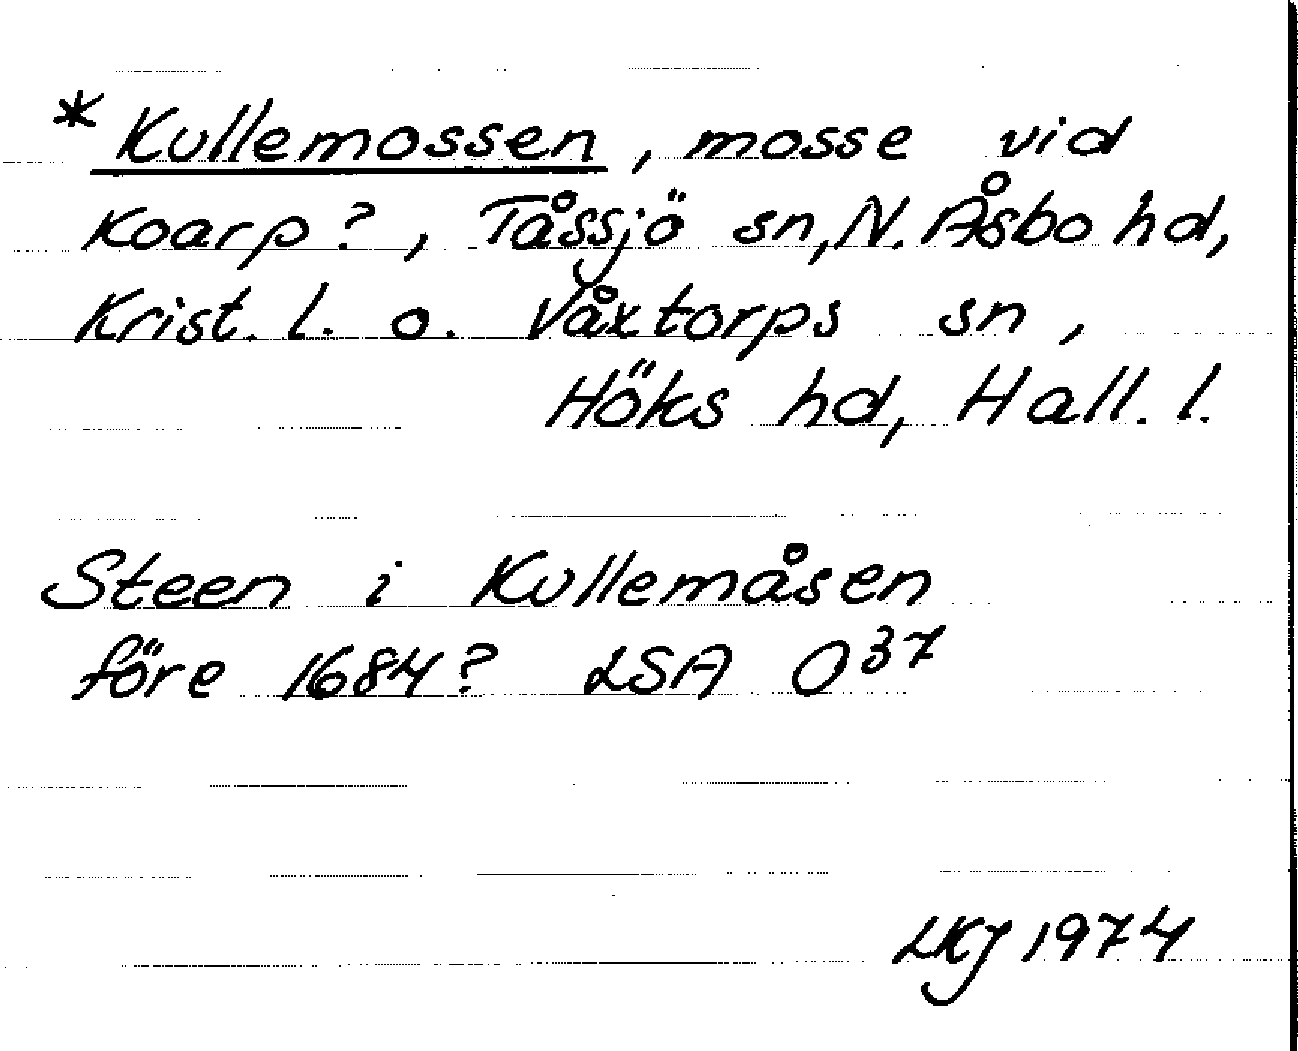 * Kullemossen, mosse vid
Koarp?, Tåssjö sn, N. Åsbo hd,
Krist. l. o. Våxtorps sn,
Höks hd, Hall. l.
Steen i Kullemåsen
före 1684? LSA O37
LKJ 1974